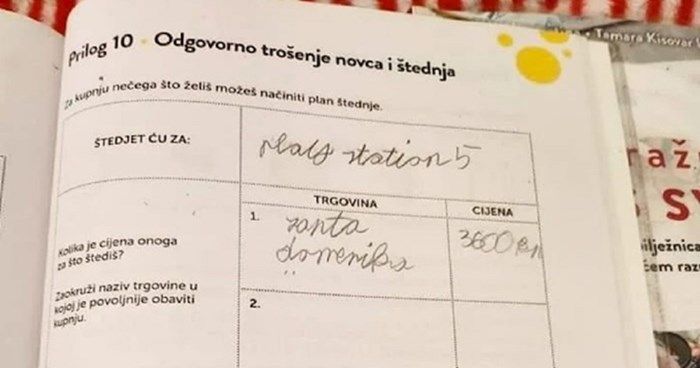 Prilog 10 • Odgovorno trošenje novca i štednja
Za kupnju nečega što želiš možeš načiniti plan štednje.
ŠTEDJET ĆU ZA:
play station 5
TRGOVINA
CIJENA
Kolika je cijena onoga
za što štediš?
1.
santa
domenika
3600 kn
Zaokruži naziv trgovine u
kojoj je povoljnije obaviti
kupnju.
2.
Tamara Kisovar
raž
S
bilježnica